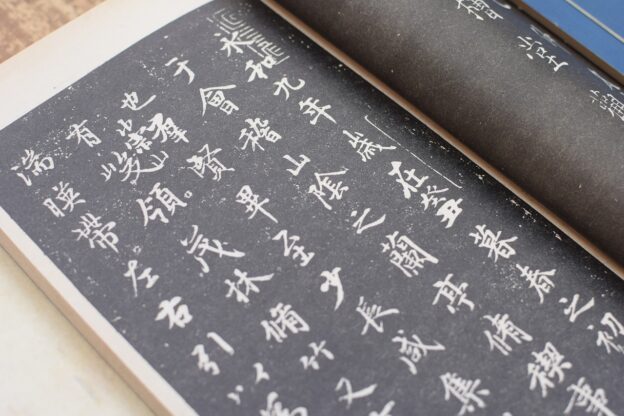 堂
永和九年歲在癸丑暮春之初
于會稽山陰之蘭亭脩稧事
也羣賢畢至少長咸集
有崇山峻領茂林脩竹又
湍暎帶左右引以為